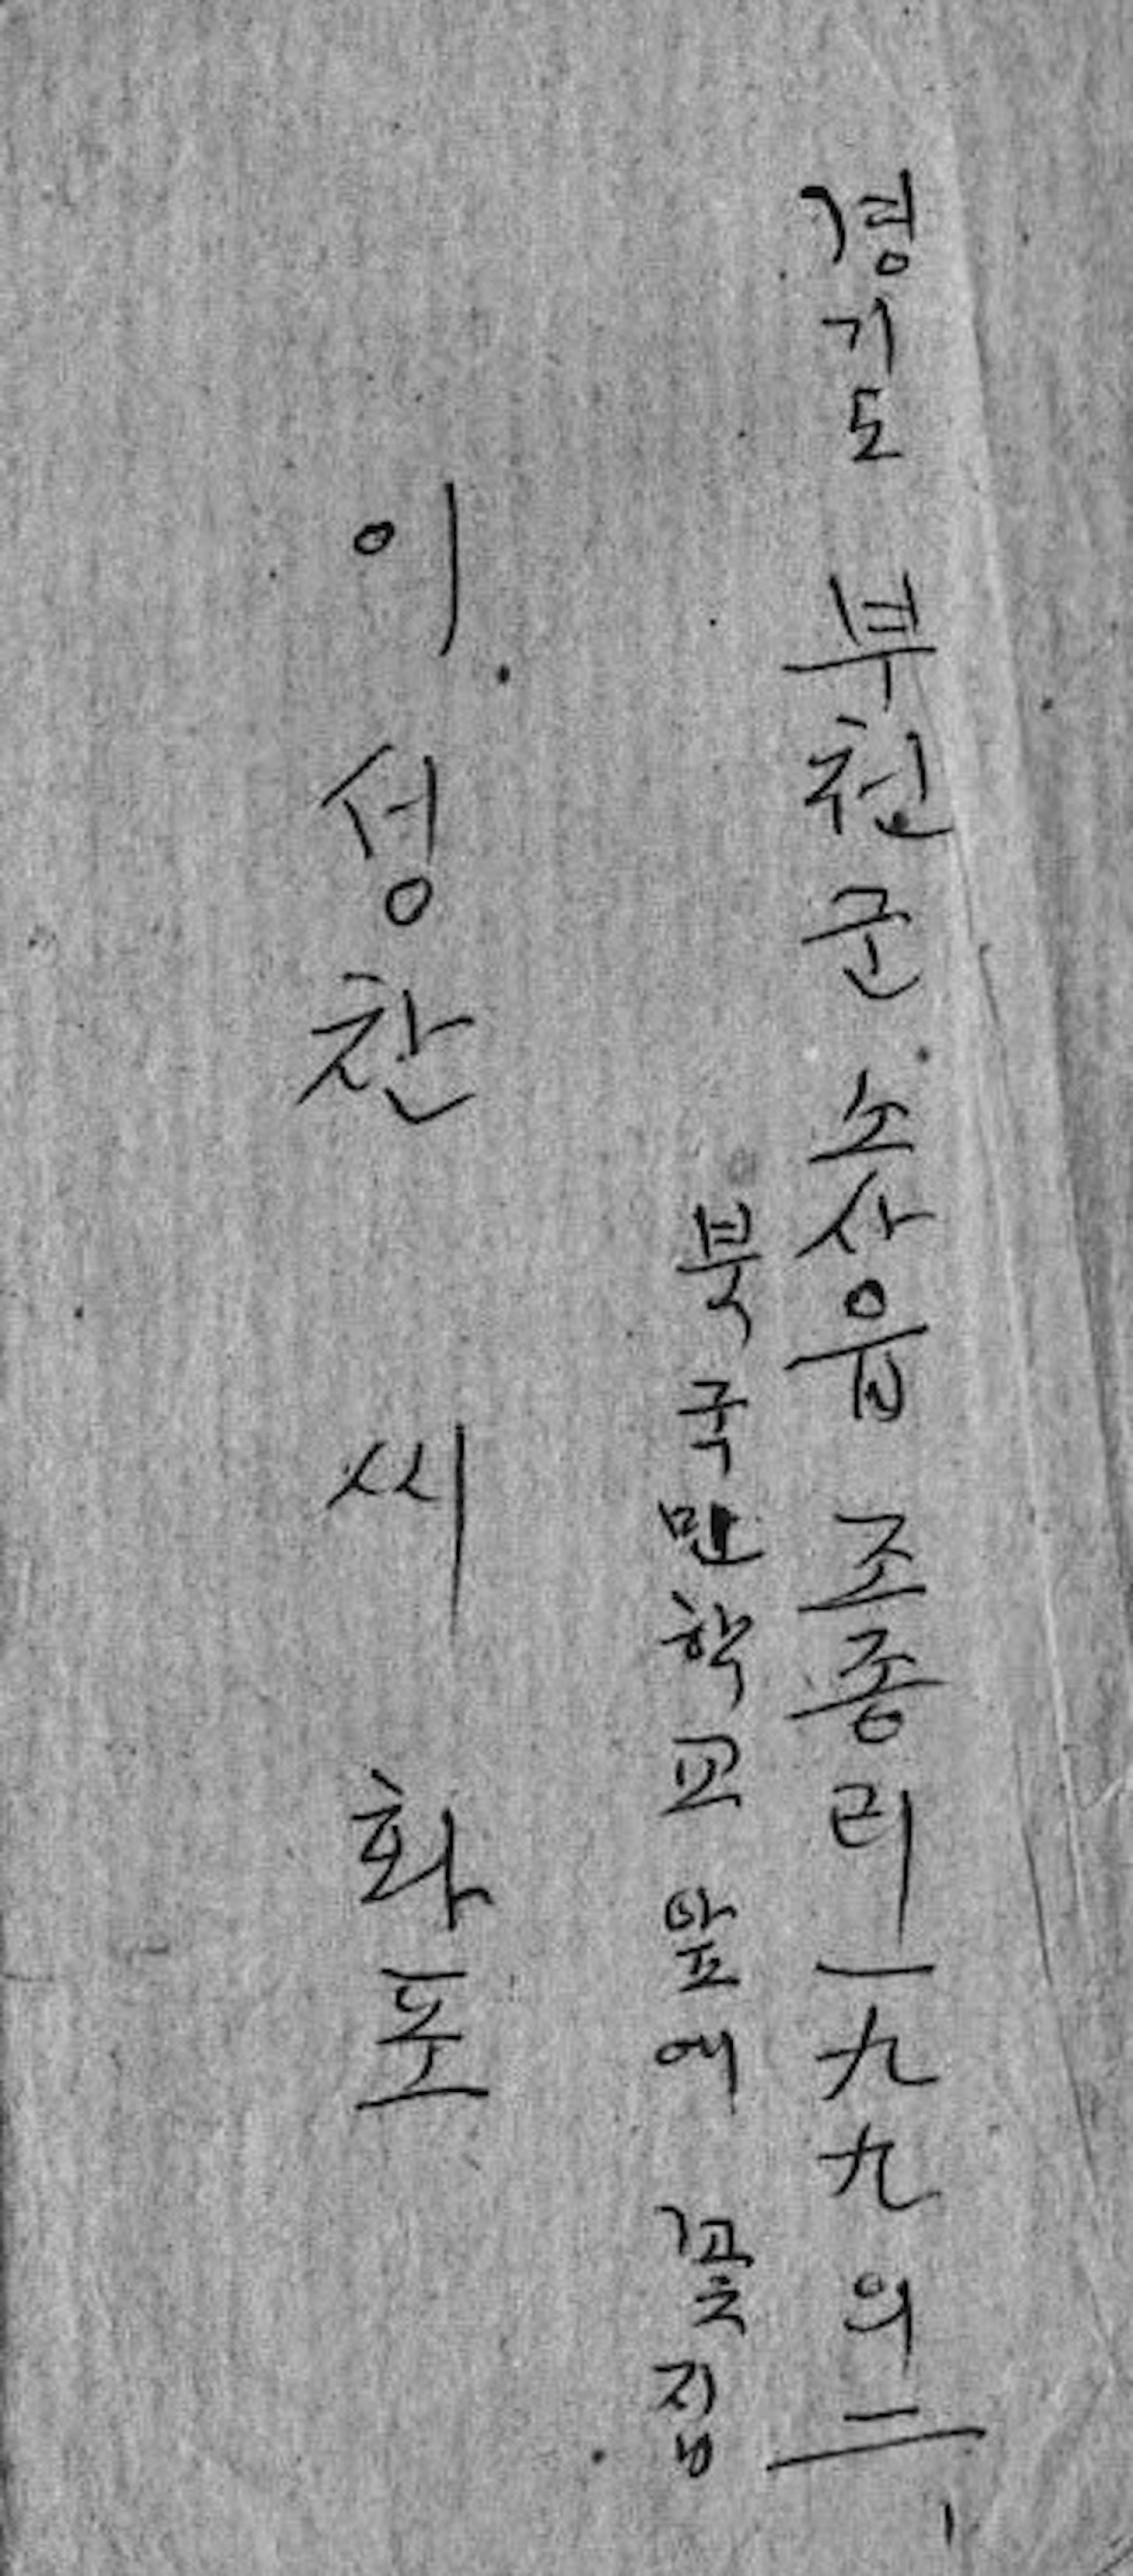 경기도 부천군 소사읍 조종리 一九九의 二
북국민학교 앞에 꽃집
이성찬 씨 화포